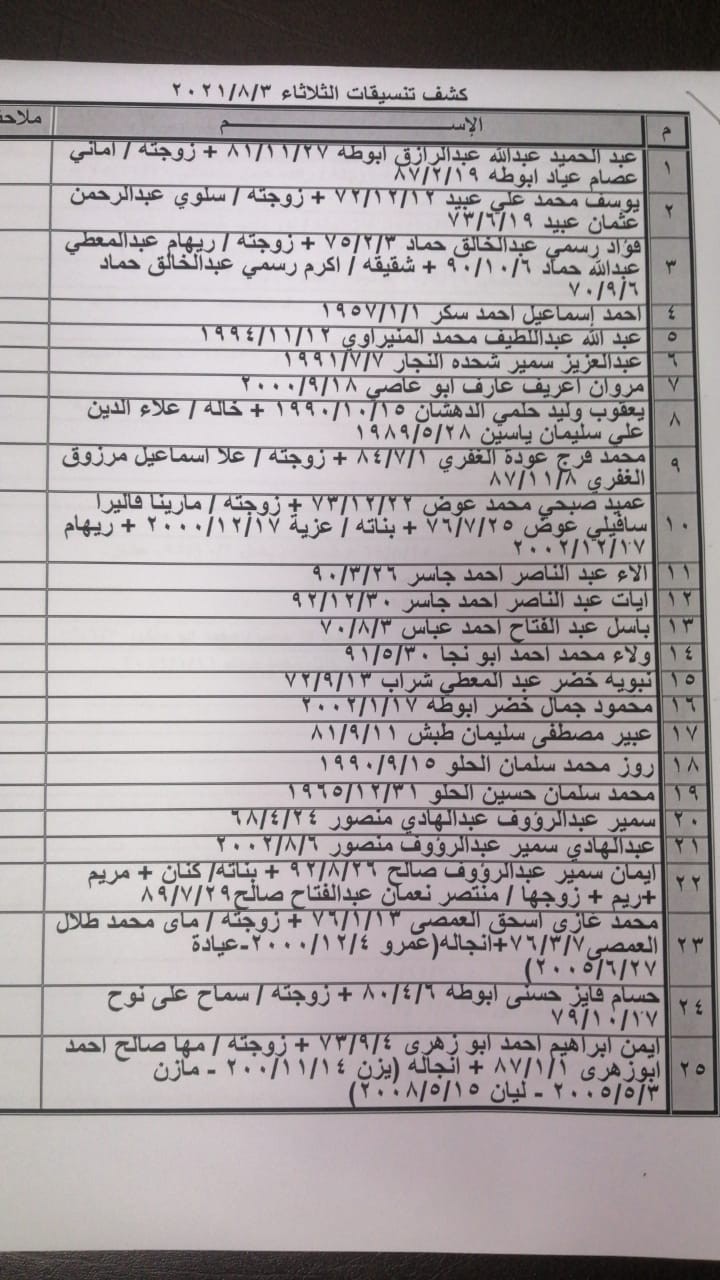 كشف تنسيقات الثلاثاء ٢٠٢١/٨/٣
م الإســـــــــم ملاحظ
١ عبد الحميد عبدالله عبدالرازق ابوطه ٨١/١١/٢٧ + زوجته / اماني
عصام عياد ابوطه ٨٧/٢/١٩
٢ يوسف محمد علي عبيد ٧٢/١٢/١٢ + زوجته / سلوي عبدالرحمن
عثمان عبيد ٧٣/٦/١٩
٣ فؤاد رسمي عبدالخالق حماد ٧٥/٢/٣ + زوجته / ريهام عبدالمعطي
عبدالله حماد ٩٠/١٠/٦ + شقيقه / اكرم رسمي عبدالخالق حماد
٧٠/٩/٦
٤ احمد إسماعيل احمد سكر ١٩٥٧/١/١
٥ عبد الله عبداللطيف محمد المنيراوي ١٩٩٤/١١/١٢
٦ عبدالعزيز سمير شحده النجار ١٩٩١/٧/٧
٧ مروان اعريف عارف ابو عاصي ٢٠٠٠/٩/١٨
٨ يعقوب وليد حلمي الدهشان ١٩٩٠/١٠/١٥ + خاله / علاء الدين
علي سليمان ياسين ١٩٨٩/٥/٢٨
٩ محمد فرج عودة الغفري ٨٤/٧/١ + زوجته / علا اسماعيل مرزوق
الغفري ٨٧/١١/٨
١٠ عميد صبحي محمد عوض ٧٣/١٢/٢٢ + زوجته / مارينا فاليرا
سافيلي عوض ٧٦/٧/٢٥ + بناته / عزية ٢٠٠٠/١٢/١٧ + ريهام
٢٠٠٢/١٢/١٧
١١ الاء عبد الناصر احمد جاسر ٩٠/٣/٢٦
١٢ ايات عبد الناصر احمد جاسر ٩٢/١٢/٣٠
١٣ باسل عبد الفتاح احمد عباس ٧٠/٨/٣
١٤ ولاء محمد احمد ابو نجا ٩١/٥/٣٠
١٥ نبويه خضر عبد المعطي شراب ٧٢/٩/١٣
١٦ محمود جمال خضر ابوطه ٢٠٠٢/١/١٧
١٧ عبير مصطفى سليمان طبش ٨١/٩/١١
١٨ روز محمد سلمان الحلو ١٩٩٠/٩/١٥
١٩ محمد سلمان حسين الحلو ١٩٦٥/١٢/٣١
٢٠ سمير عبدالرؤوف عبدالهادي منصور ٦٨/٤/٢٤
٢١ عبدالهادي سمير عبدالرؤوف منصور ٢٠٠٢/٨/٦
٢٢ ايمان سمير عبدالرؤوف صالح ٩٢/٨/٢٦ + بناته/ كنان + مريم
+ريم + زوجها / منتصر نعمان عبدالفتاح صالح٨٩/٧/٢٩
٢٣ محمد غازى اسحق العمصى ٧٦/١/١٣ + زوجته / ماى محمد طلال
العمصى٧٦/٣/٧+انجاله(عمرو ٢٠٠٠/١٢/٤-عيادة
٢٠٠٥/٦/٢٧)
٢٤ حسام فايز حسنى ابوطه ٨٠/٤/٦ + زوجته / سماح على نوح
٧٩/١٠/١٧
٢٥ ايمن ابراهيم احمد ابو زهرى ٧٣/٩/٤ + زوجته / مها صالح احمد
ابوزهرى ٨٧/١/١ + انجاله (يزن ٢٠٠/١١/١٤ - مازن
٢٠٠٥/٥/٣ - ليان ٢٠٠٨/٥/١٥)